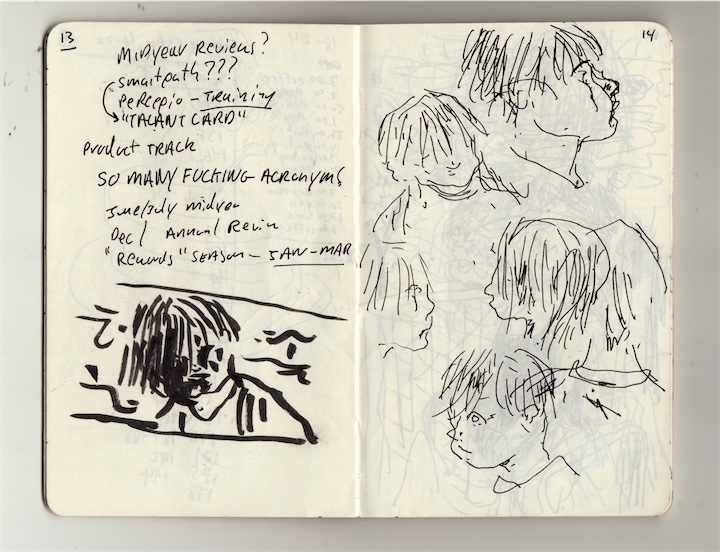 13
MIDyear Reviews?
smartpath???
PeRcepio - TRaining
"TALANT CARD"
PRoduct TRACK
SO MANY FUCKING ACRONYMS
June/July midyear
Dec/ Annual Review
"Rewards" SEASON - JAN - MAR
14